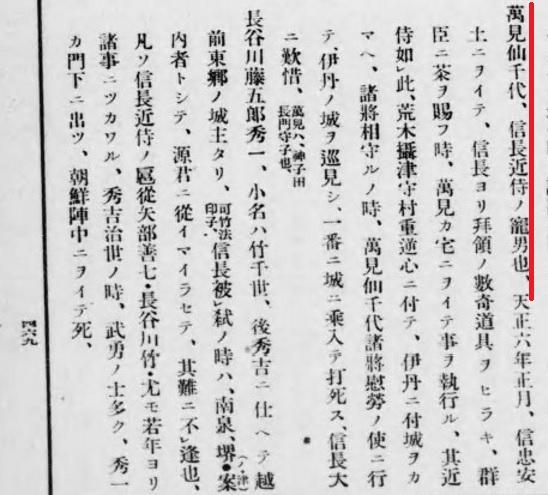 萬見仙千代、信長近侍ノ寵男也、天正六年正月、信忠安
土ニヲイテ、信長ヨリ拜領ノ數奇道具ヲヒラキ、群
臣ニ茶ヲ賜フ時、萬見カ宅ニヲイテ事ヲ執行ル、其近
侍如レ此、荒木攝津守村重逆心ニ付テ、伊丹ニ付城ヲカ
マヘ、諸將相守ルノ時、萬見仙千代諸將慰勞ノ使ニ行
テ、伊丹ノ城ヲ巡見シ、一番ニ城ニ乘入テ打死ス、信長大
ニ歎惜、萬見ハ、神子田長門守子也、
長谷川藤五郎秀一、小名ハ竹千世、後秀吉ニ仕ヘテ越
前東鄕ノ城主タリ、可竹法印子、信長被レ弑ノ時ハ、南泉、堺・(ノ津)案
內者トシテ、源君ニ從イマイラセテ、其難ニ不レ逢也、
凡ソ信長近侍ノ扈從矢部善七・長谷川竹・尤モ若年ヨリ
諸事ニツカワル、秀吉治世ノ時、武勇ノ士多ク、秀一
カ門下ニ出ツ、朝鮮陣中ニヲイテ死、
四六九